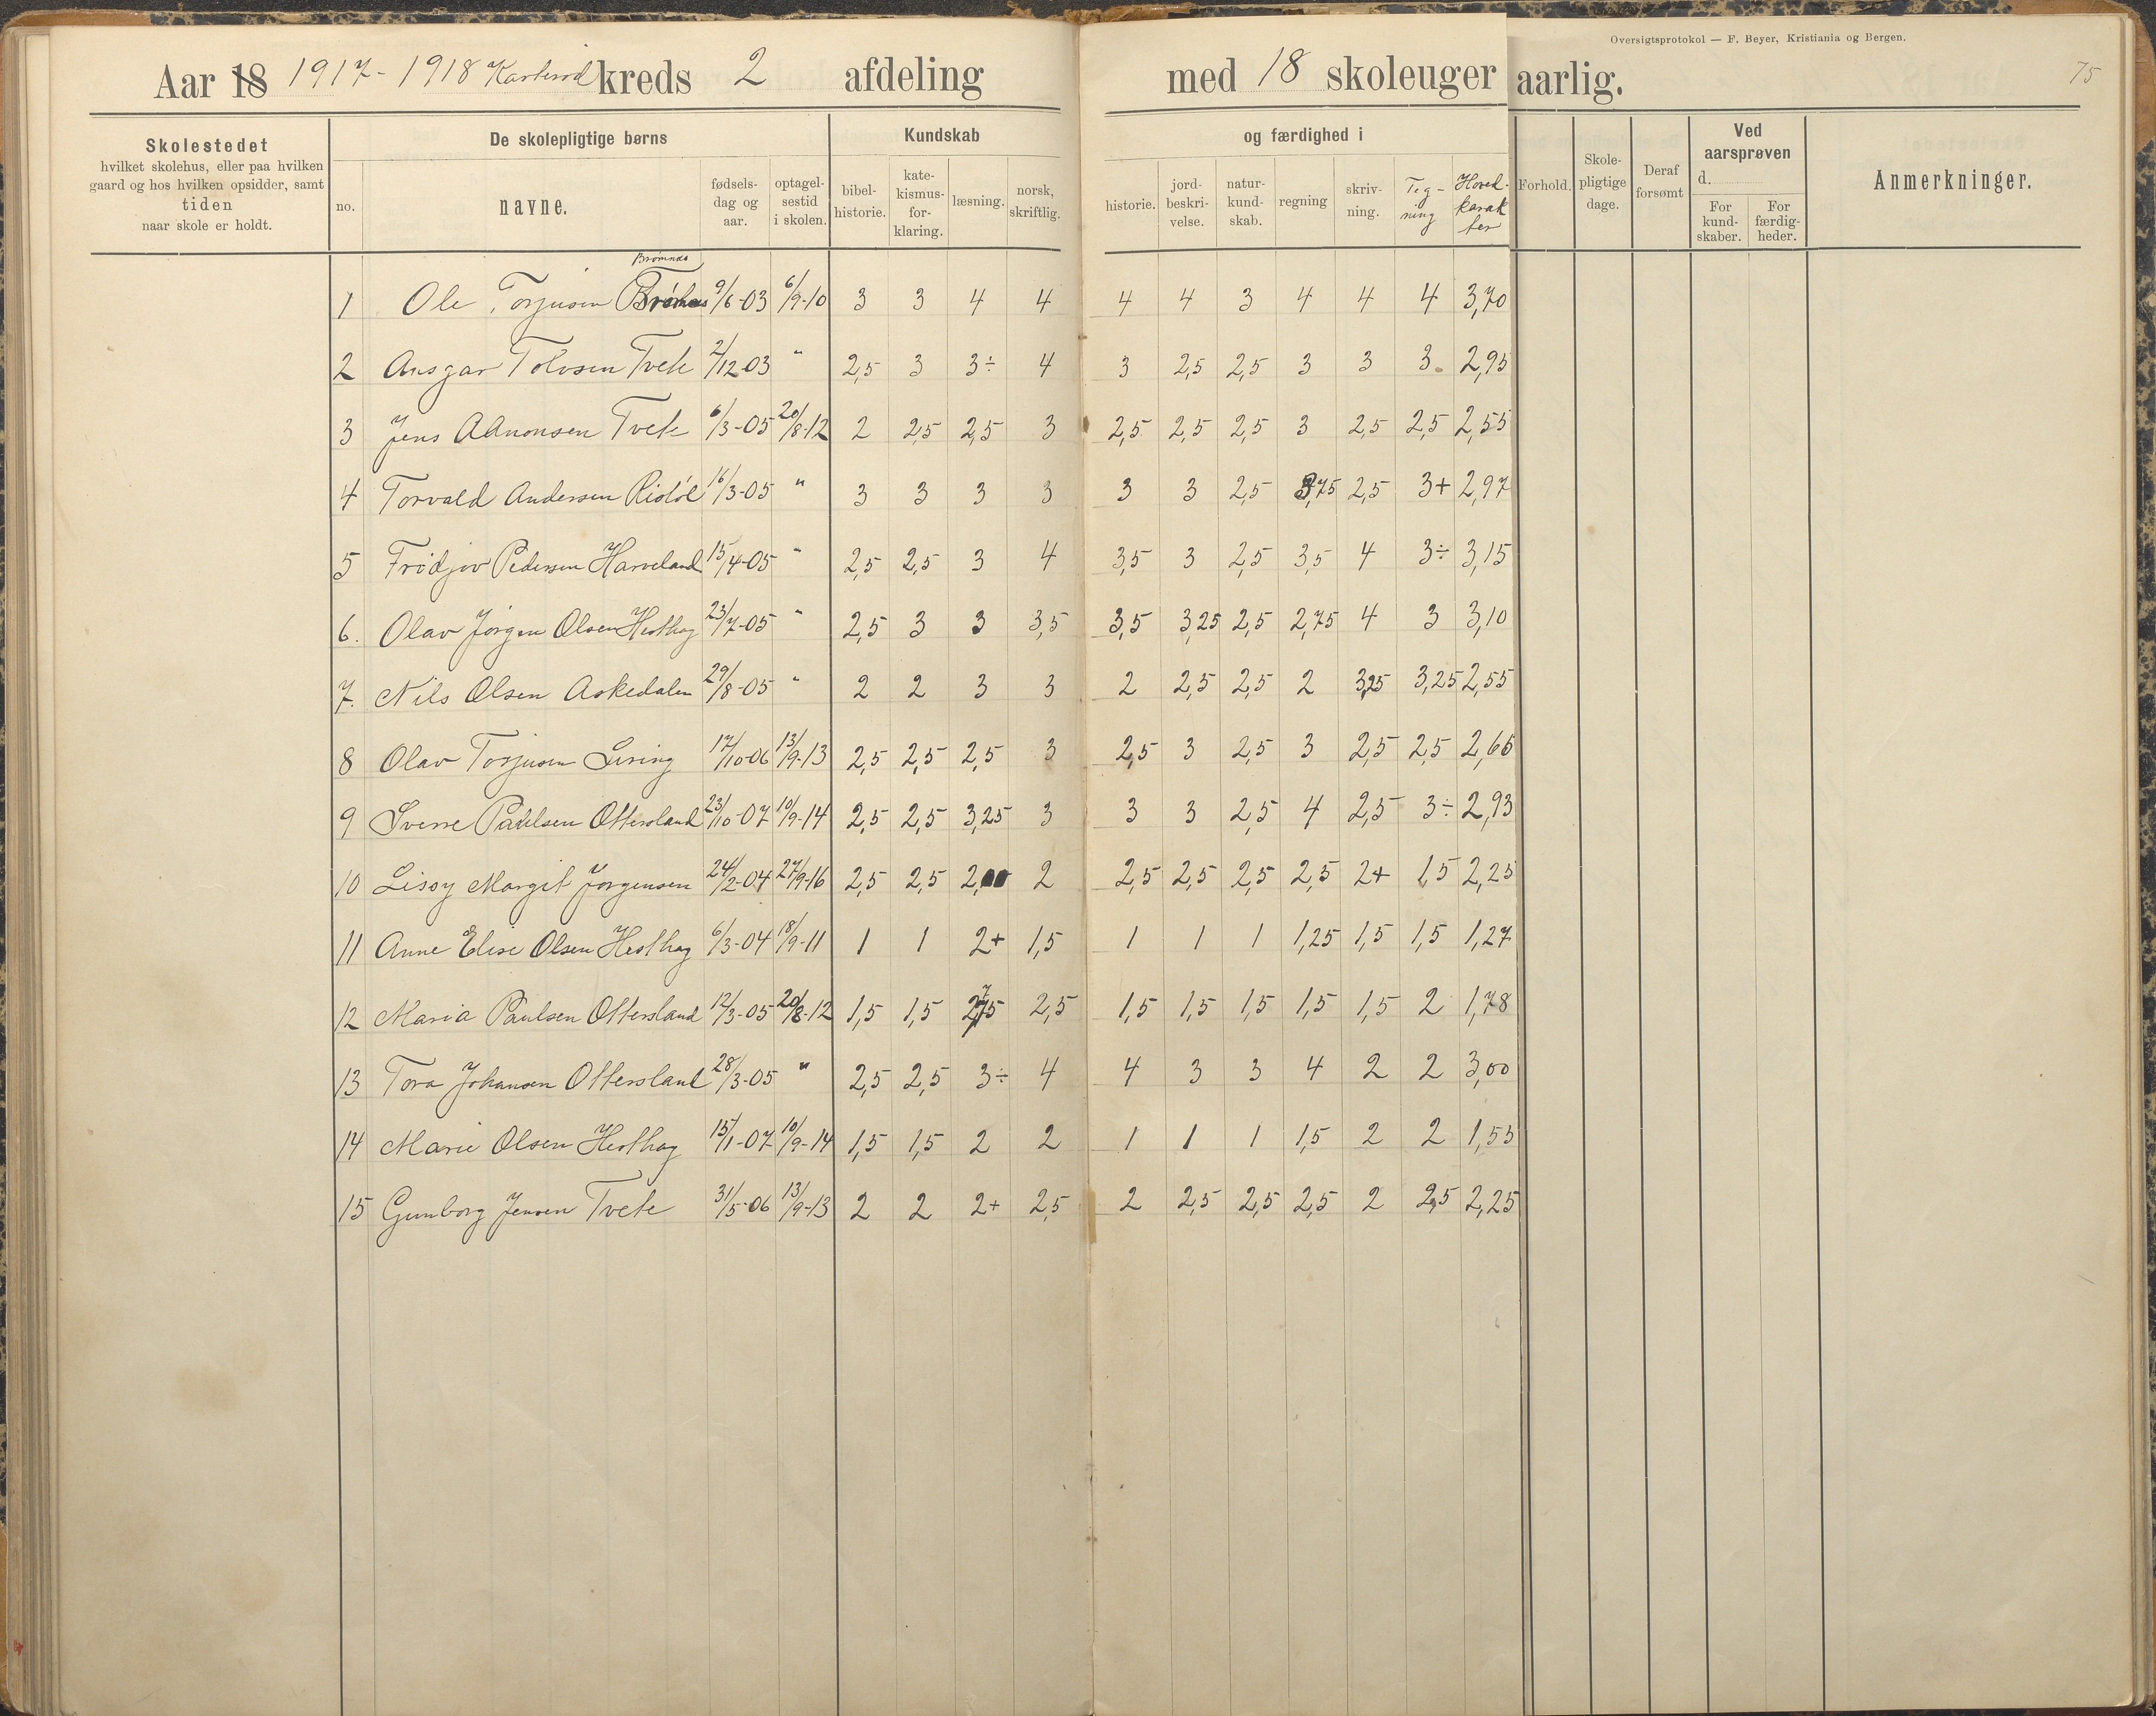 Oversigtsprotokol — F. Beyer, Kristiania og Bergen.
75
Aar 18 1917-1918 kreds 2 afdeling med 18 skoleuger aarlig.
Skolestedet
hvilket skolehus, eller paa hvilken
gaard og hos hvilken opsidder, samt
tiden
naar skole er holdt.
De skolepligtige børns
no.
navne.
fødsels-
dag og
aar.
optagel-
sestid
i skolen.
Kundskab
bibel-
historie.
kate-
kismus-
for-
klaring.
læsning.
norsk,
skriftlig.
og færdighed i
historie.
jord-
beskri-
velse.
natur-
kund-
skab.
regning
skriv-
ning.
Teg-
ning
Hoved-
karak
ter
Forhold.
Skole-
pligtige
dage.
Deraf
forsømt
Ved
aarsprøven
d.
For
kund-
skaber.
For
færdig-
heder.
Anmerkninger.
Bromnes
1 Ole Torjusen 9/6-03 6/9-10 3 3 4 4 4 4 3 4 4 4 3,70
2 Ansgar Tolvsen Tvete 2/12-03 " 2,5 3 3÷ 4 3 2,5 2,5 3 3 3. 2,95
3 Jens Aanonsen Tvete 6/3-05 20/8-12 2 2,5 2,5 3 2,5 2,5 2,5 3 2,5 2,5 2,55
4 Torvald Andersen Risløl 16/3-05 " 3 3 3 3 3 3 2,5 3,75 2,5 3+ 2,97
5 Fridjov Pedersen Harveland 15/4-05 " 2,5 2,5 3 4 3,5 3 2,5 3,5 4 3÷ 3,15
6. Olav Jørgen Olsen Hesthag 23/7-05 " 2,5 3 3 3,5 3,5 3,25 2,5 2,75 4 3 3,10
7. Nils Olsen Askedalen 29/8-05 " 2 2 3 3 2 2,5 2,5 2 3,25 3,25 2,55
8 Olav Torjusen Liring 17/10-06 13/9-13 2,5 2,5 2,5 3 2,5 3 2,5 3 2,5 2,5 2,65
9 Sverre Paulsen Ottersland 23/10-07 10/9-14 2,5 2,5 3,25 3 3 3 2,5 4 2,5 3÷ 2,93
10 Lisoy Margit Jørgensen 24/2-04 27/9-16 2,5 2,5 2,00 2 2,5 2,5 2,5 2,5 2+ 1,5 2,25
11 Anne Elise Olsen Hesthag 6/3-04 18/9-11 1 1 2+ 1,5 1 1 1 1,25 1,5 1,5 1,27
12 Maria Paulsen Ottersland 12/3-05 20/8-12 1,5 1,5 2,75 2,5 1,5 1,5 1,5 1,5 1,5 2 1,78
13 Tora Johansen Ottersland 28/3-05 " 2,5 2,5 3÷ 4 4 3 3 4 2 2 3,00
14 Marie Olsen Hesthag 15/1-07 10/9-14 1,5 1,5 2 2 1 1 1 1,5 2 2 1,55
15 Gunborg Jensen Tvete 31/5-06 13/9-13 2 2 2+ 2,5 2 2,5 2,5 2,5 2 2,5 2,25